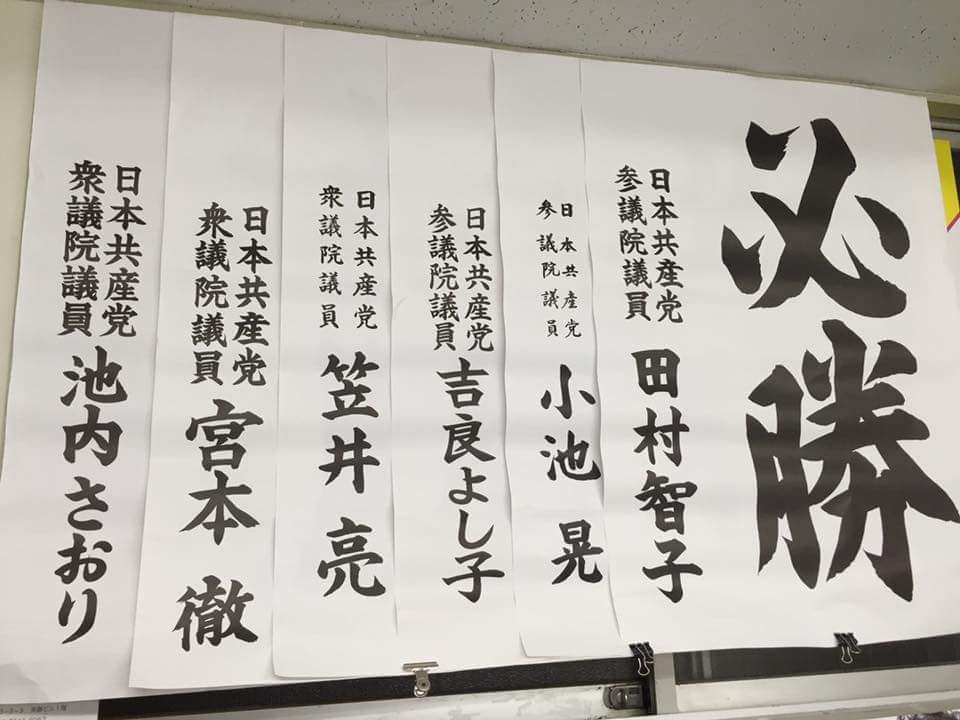 必勝
日本共産党
参議院議員
田村智子
日本共産党
参議院議員
小池 晃
日本共産党
参議院議員
吉良よし子
日本共産党
衆議院議員
笠井 亮
日本共産党
衆議院議員
宮本 徹
日本共産党
衆議院議員
池内さおり